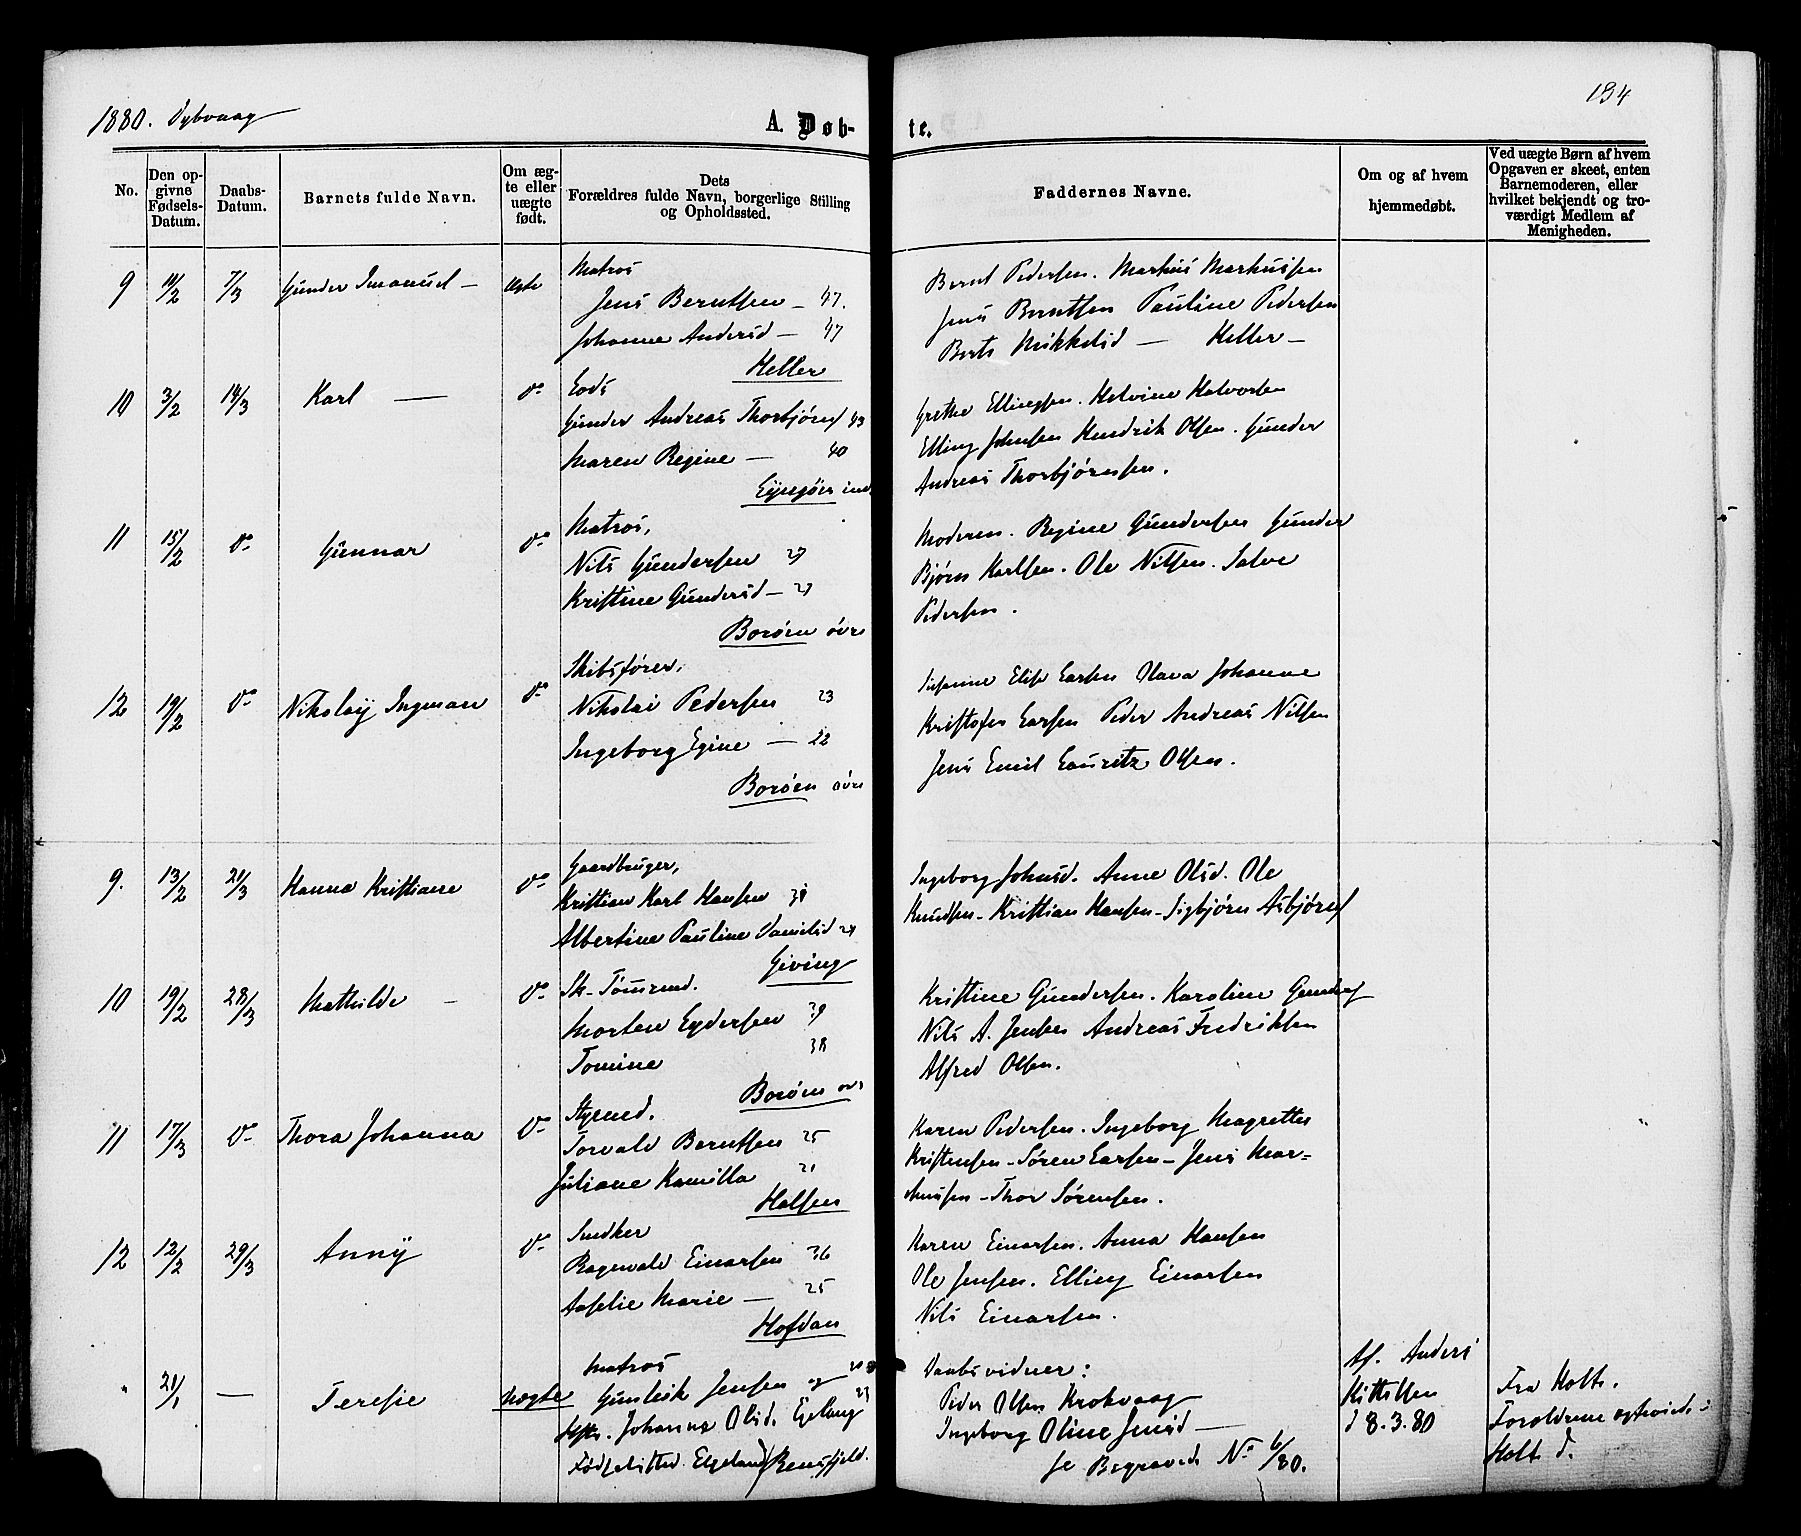 1880. Dybvaag
A. Døb-
te.
134
No.
Den op-
givne
Fødsels-
Datum.
Daabs-
Datum.
Barnets fulde Navn.
Om æg-
te eller
uægte
født.
Dets
Forældres fulde Navn, borgerlige Stilling
og Opholdssted.
Faddernes Navne.
Om og af hvem
hjemmedøbt.
Ved uægte Børn af hvem
Opgaven er skeet, enten
Barnemoderen, eller
hvilket bekjendt og tro-
værdigt Medlem af
Menigheden.
9 11/2 7/3 Gunder Imanuel — Ægte
Matros
Jens Berntsen — 47.
Johanne Andersd — 47
Heller
Bernt Pedersen. Markus Markussen
Jens Berntsen Pauline Pedersen
Berte Mikkelsd — Heller —
10 3/2 14/3 Karl — do
Lods
Gunder Andreas Thorbjørns 43
Maren Regine — 40
Grethe Ellingsen. Helvine Halvorsen
Elling Johnsen Hendrik Olsen. Gunder
Andreas Thorbjørnsen.
11 15/2 do Gunnar do
Matros,
Nils Gundersen 27
Kristine Gundersd — 27
Borøen øvre
Moderen. Regine Gundersen Gunder
Bjørn Karlsen. Ole Nilsen. Salve
Pedersen.
12 19/2 do Nikolaÿ Ingman do
Skibsfører,
Nikolai Pedersen 23
Ingeborg Egine — 22
Borøen øvre
Susanne Elise Larsen Olava Johanne
Kristofer Larsen Peder Andreas Nilsen
Jens Emil Lauritz Olsen.
9. 13/2 21/3 Hanna Kristiane do
Gaardbruger,
Kristian Karl Hansen
Albertine Pauline Danielsd
Giving
Ingeborg Johnsd. Anne Olsd. Ole
Knudsen — Kristian Hansen — Sigbjørn Asbjørns
10 19/2 28/3 Mathilde — do
Sk. Tømrmd.
Morten Eydersen 39
Tomine 38
Borøen øvr
Kristine Gundersen. Karoline Gunders
Nils A. Jensen Andreas Fredriksen
Alfred Olsen.
11 17/3 do Thora Johanna do
Styrmd.
Torvald Berntsen 25
Juliane Kamilla 21
Halsen
Karen Pedersen. Ingeborg Magrethe
Kristensen — Søren Larsen — Jens Mar=
kussen — Thor Sørensen.
12 12/2 29/3 Annÿ do
Snedker
Ragnvald Einarsen 36
Aaselie Marie — 25
Hofdan
Karen Einarsen. Anna Hansen
Ole Jensen. Elling Einarsen
Nils Einarsen.
" 21/1 — Teresie Uægte
Matros
Gunleik Jensen og
Johanne Olsd. Egeland
Fødselssted. Egeland
Daabsvidner:
Peder Olsen Krokvaag
Ingeborg Oline Jensd —
se Begravede No 6/80.
Af. Anders
Kittilsen
d 8.3.80
Fra Holt.
Forældrene
Holt d.